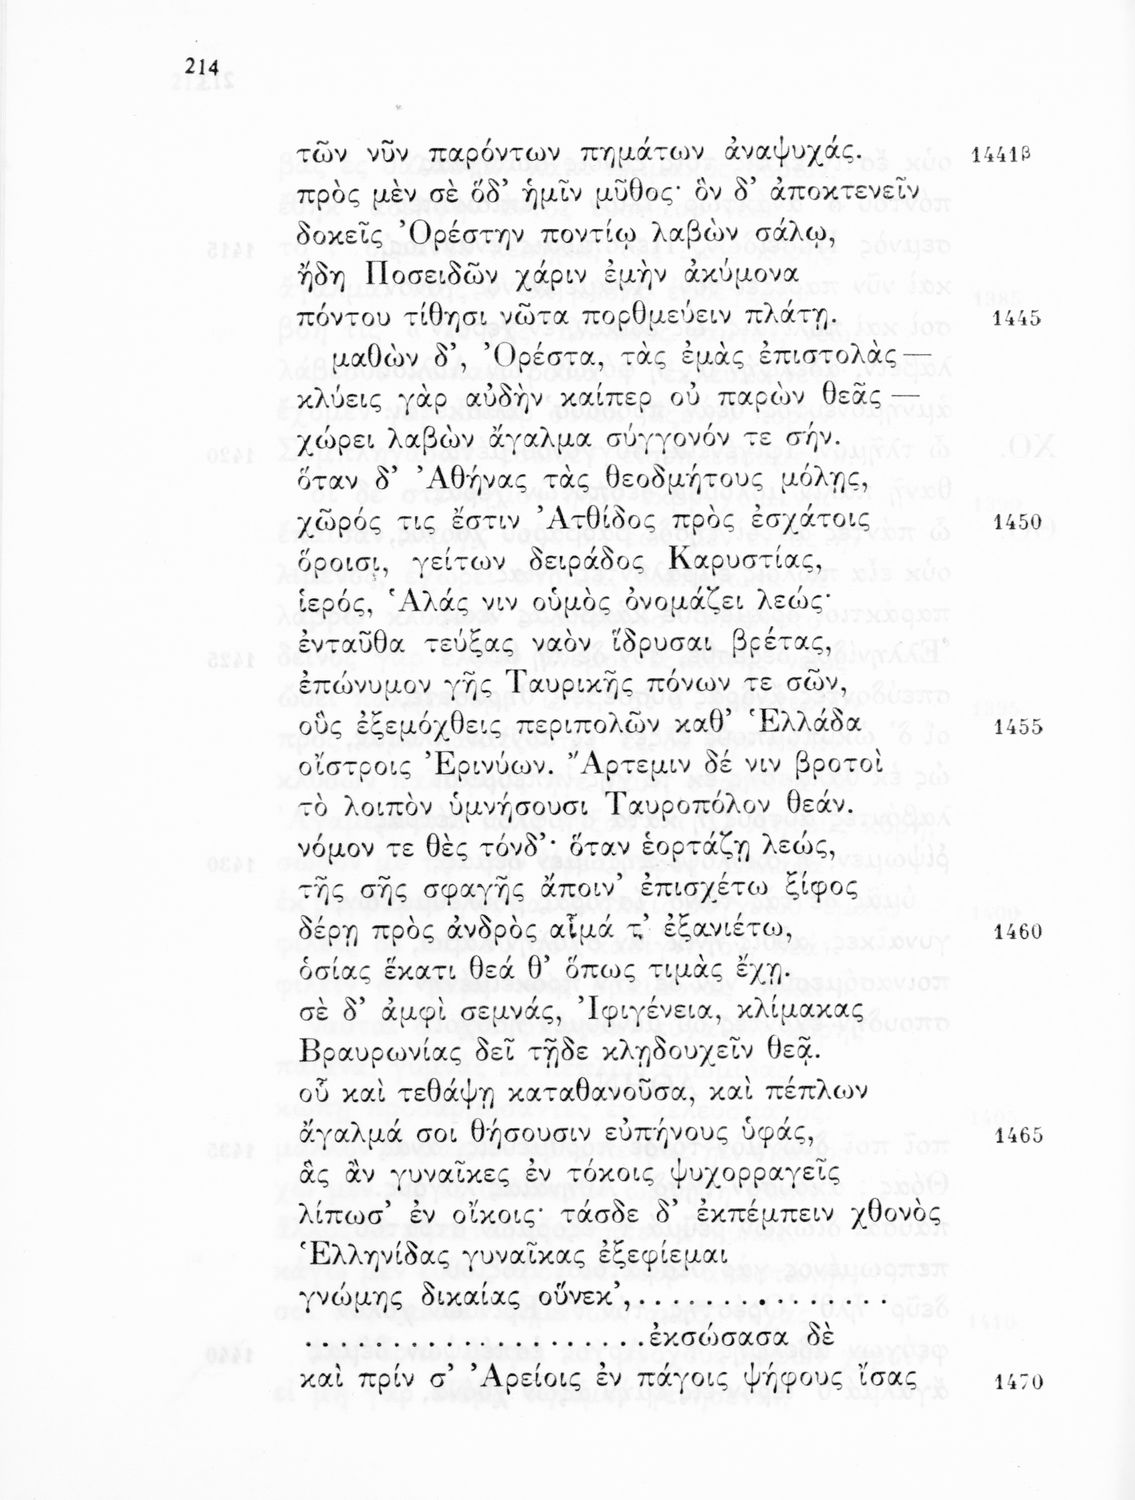 214
τῶν νῦν παρόντων πημάτων ἀναψυχάς. 1441β
πρὸς μὲν σὲ ὅδ’ ἡμῖν μῦθος· ὃν δ’ ἀποκτενεῖν
δοκεῖς Ὀρέστην ποντίῳ λαβὼν σάλῳ,
ἤδη Ποσειδῶν χάριν ἐμὴν ἀκύμονα
πόντου τίθησι νῶτα πορθμεύειν πλάτῃ. 1445
μαθὼν δ’, Ὀρέστα, τὰς ἐμὰς ἐπιστολὰς —
κλύεις γὰρ αὐδὴν καίπερ οὐ παρὼν θεᾶς —
χώρει λαβὼν ἄγαλμα σύγγονόν τε σήν.
ὅταν δ’ Ἀθήνας τὰς θεοδμήτους μόλῃς,
χῶρός τις ἔστιν Ἀτθίδος πρὸς ἐσχάτοις 1450
ὅροισι, γείτων δειράδος Καρυστίας,
ἱερός, Ἁλάς νιν οὑμὸς ὀνομάζει λεώς·
ἐνταῦθα τεύξας ναὸν ἵδρυσαι βρέτας,
ἐπώνυμον γῆς Ταυρικῆς πόνων τε σῶν,
οὓς ἐξεμόχθεις περιπολῶν καθ’ Ἑλλάδα 1455
οἴστροις Ἐρινύων. Ἄρτεμιν δέ νιν βροτοὶ
τὸ λοιπὸν ὑμνήσουσι Ταυροπόλον θεάν.
νόμον τε θὲς τόνδ’· ὅταν ἑορτάζῃ λεώς,
τῆς σῆς σφαγῆς ἄποιν’ ἐπισχέτω ξίφος
δέρῃ πρὸς ἀνδρὸς αἷμά τ’ ἐξανιέτω, 1460
ὁσίας ἕκατι θεά θ’ ὅπως τιμὰς ἔχῃ.
σὲ δ’ ἀμφὶ σεμνάς, Ἰφιγένεια, κλίμακας
Βραυρωνίας δεῖ τῇδε κλῃδουχεῖν θεᾷ.
οὗ καὶ τεθάψῃ κατθανοῦσα, καὶ πέπλων
ἄγαλμά σοι θήσουσιν εὐπήνους ὑφάς, 1465
ἃς ἂν γυναῖκες ἐν τόκοις ψυχορραγεῖς
λίπωσ’ ἐν οἴκοις· τάσδε δ’ ἐκπέμπειν χθονὸς
Ἑλληνίδας γυναῖκας ἐξεφίεμαι
γνώμης δικαίας οὕνεκ’, . . . . . . . . . . . . . .
. . . . . . . . . . . . . . . . . . . ἐκσώσασα δὲ
καὶ πρίν σ’ Ἀρείοις ἐν πάγοις ψήφους ἴσας 1470